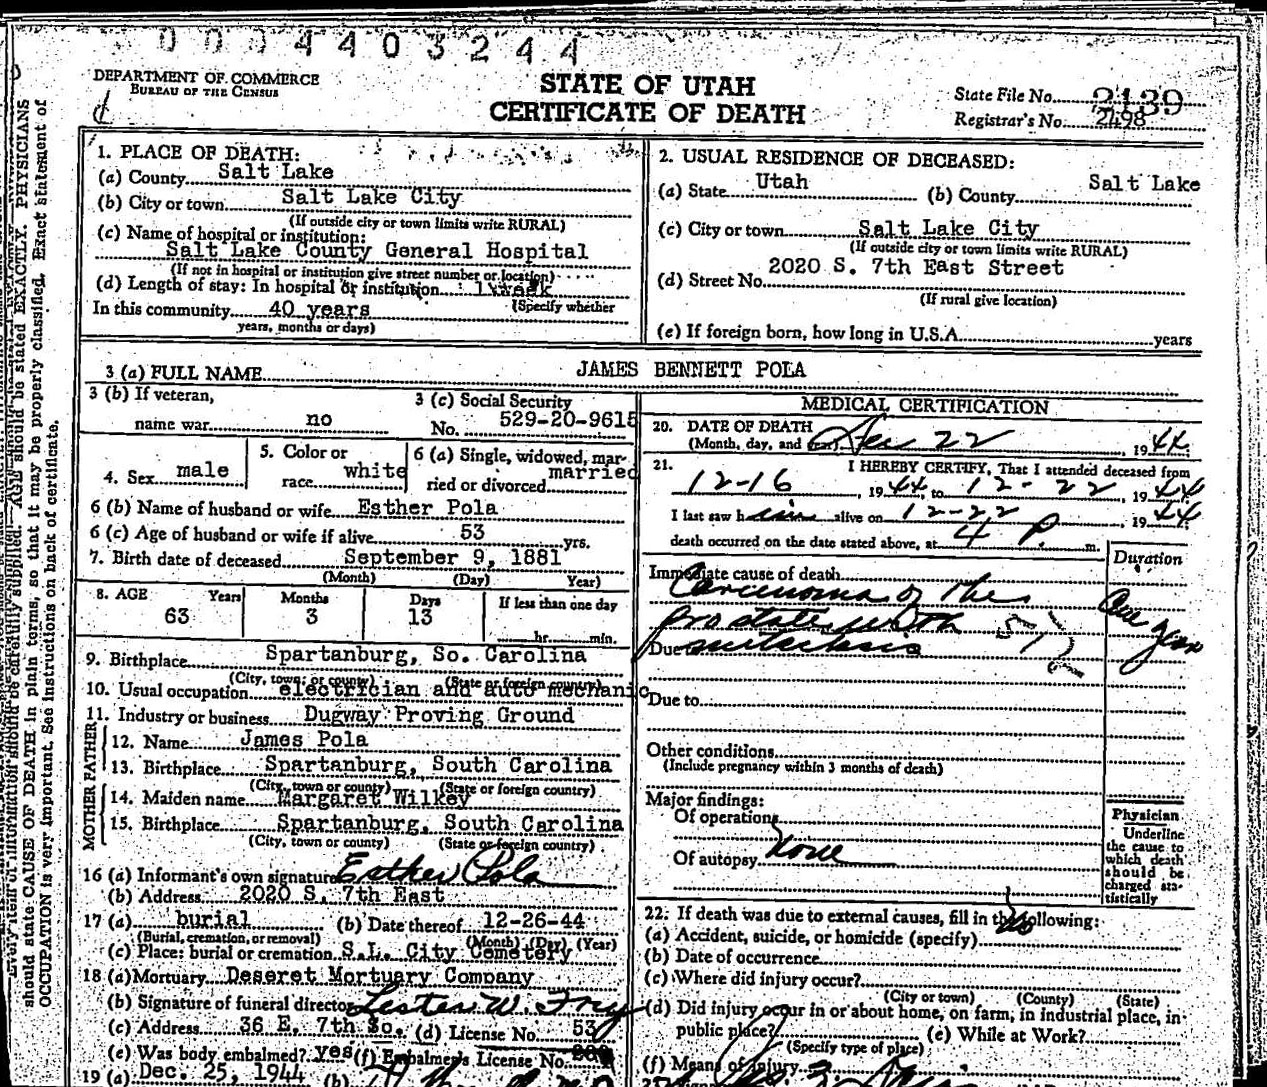 0004403244
DEPARTMENT OF COMMERCE
BUREAU OF THE CENSUS
STATE OF UTAH
CERTIFICATE OF DEATH
State File No. 2139
Registrar's No. 2498
1. PLACE OF DEATH:
(a) County Salt Lake
(b) City or town Salt Lake City
(If outside city or town limits write RURAL)
(c) Name of hospital or institution:
Salt Lake County General Hospital
(If not in hospital or institution give street number or location)
(d) Length of stay: In hospital or institution 1 week
(Specify whether
In this community 40 years
years, months or days)
2. USUAL RESIDENCE OF DECEASED:
(a) State Utah (b) County Salt Lake
(c) City or town Salt Lake City
(If outside city or town limits write RURAL)
(d) Street No. 2020 S. 7th East Street
(If rural give location)
(e) If foreign born, how long in U.S.A. years
3 (a) FULL NAME JAMES BENNETT POLA
3 (b) If veteran,
name war no
3 (c) Social Security
No. 529-20-9615
4. Sex male
5. Color or
race white
6 (a) Single, widowed, mar-
ried or divorced married
6 (b) Name of husband or wife Esther Pola
6 (c) Age of husband or wife if alive 53 yrs.
7. Birth date of deceased September 9, 1881
(Month) (Day) Year)
8. AGE Years Months Days If less than one day
63 3 13 hr. min.
9. Birthplace Spartanburg, So. Carolina
(City, town; or county) (State or foreign country)
10. Usual occupation electrician and auto mechanic
11. Industry or business Dugway Proving Ground
FATHER
12. Name James Pola
13. Birthplace Spartanburg, South Carolina
(City, town or county) (State or foreign country)
MOTHER
14. Maiden name Margaret Wilkey
15. Birthplace Spartanburg, South Carolina
(City, town or county) (State or foreign country)
16 (a) Informant's own signature Esther Pola
(b) Address 2020 S. 7th East
17 (a) burial (b) Date thereof 12-26-44
(Burial, cremation, or removal) (Month) (Day) (Year)
(c) Place: burial or cremation S.L. City Cemetery
18 (a) Mortuary Deseret Mortuary Company
(b) Signature of funeral director Lester W. Fry
(c) Address 36 E. 7th So. (d) License No. 53
(e) Was body embalmed? yes (f) Embalmer's License No.
19 (a) Dec. 25, 1944 (b)
MEDICAL CERTIFICATION
20. DATE OF DEATH
(Month, day, and year) Dec 22, 1944
21. I HEREBY CERTIFY, That I attended deceased from
12-16, 1944 to 12-22, 1944
I last saw him alive on 12-22 1944
death occurred on the date stated above, at 4 P. m.
Duration
Immediate cause of death
Carcinoma of the One year
prostate with
Due metastasis
Due to
Other conditions
(Include pregnancy within 3 months of death)
Major findings:
Of operations
Of autopsy None
Physician
Underline
the cause to
which death
should be
charged sta-
tistically
22. If death was due to external causes, fill in the following:
(a) Accident, suicide, or homicide (specify)
(b) Date of occurrence
(c) Where did injury occur?
(City or town) (County) (State)
(d) Did injury occur in or about home, on farm, in industrial place, in
public place? (e) While at Work?
(Specify type of place)
(f) Means of injury
should be carefully supplied. AGE should be stated EXACTLY. PHYSICIANS
should state CAUSE OF DEATH in plain terms, so that it may be properly classified. Exact statement of
OCCUPATION is very important. See instructions on back of certificate.